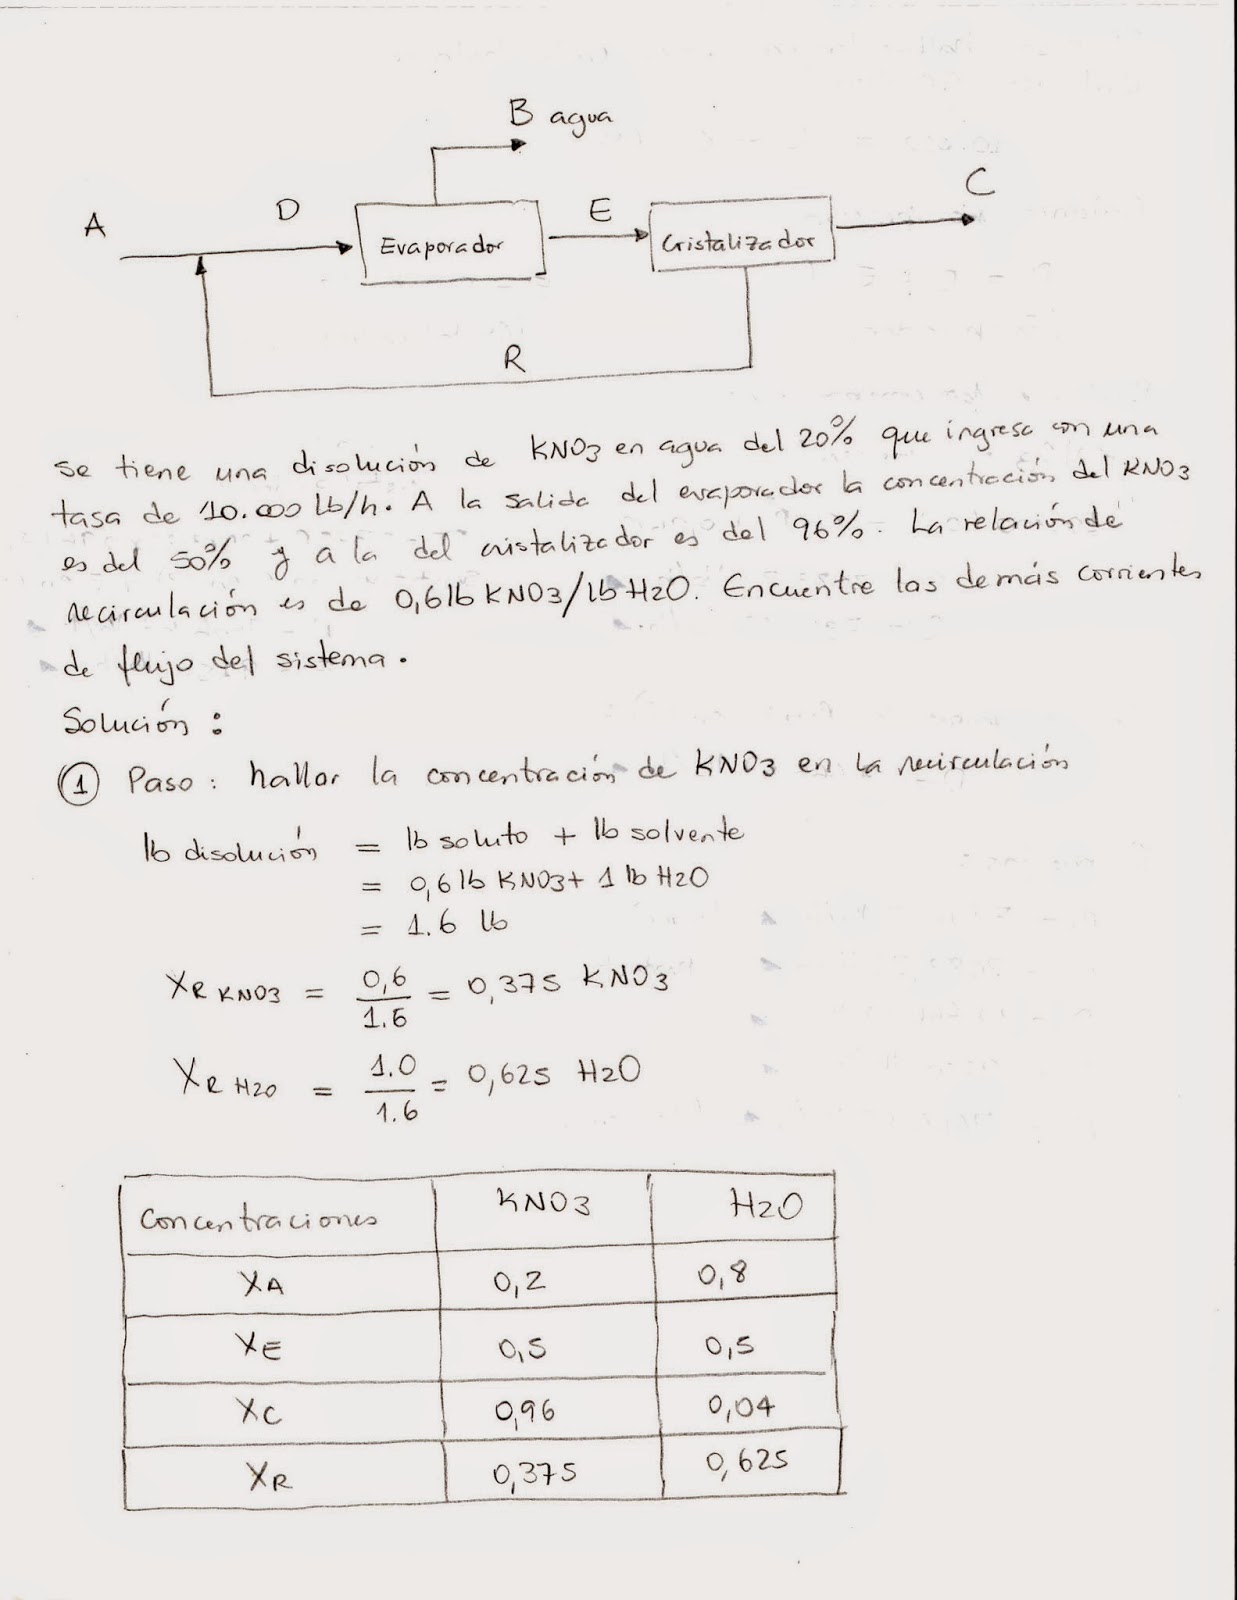 B agua
A
D
Evaporador
E
Cristalizador
C
R
se tiene una disolución de KNO3 en agua del 20% que ingresa con una
tasa de 10.000 lb/h. A la salida del evaporador la concentración del KNO3
es del 50% y a la del cristalizador es del 96%. La relación de
recirculación es de 0,6 lb KNO3/lb H2O. Encuentre las demás corrientes
de flujo del sistema.
Solución :
1 Paso : hallar la concentración de KNO3 en la recirculación
lb disolución = lb soluto + lb solvente
= 0,6 lb KNO3 + 1 lb H2O
= 1.6 lb
XR KNO3 = 0,6 / 1.6 = 0,375 KNO3
XR H2O = 1.0 / 1.6 = 0,625 H2O
Concentraciones KNO3 H2O
XA 0,2 0,8
XE 0,5 0,5
XC 0,96 0,04
XR 0,375 0,625